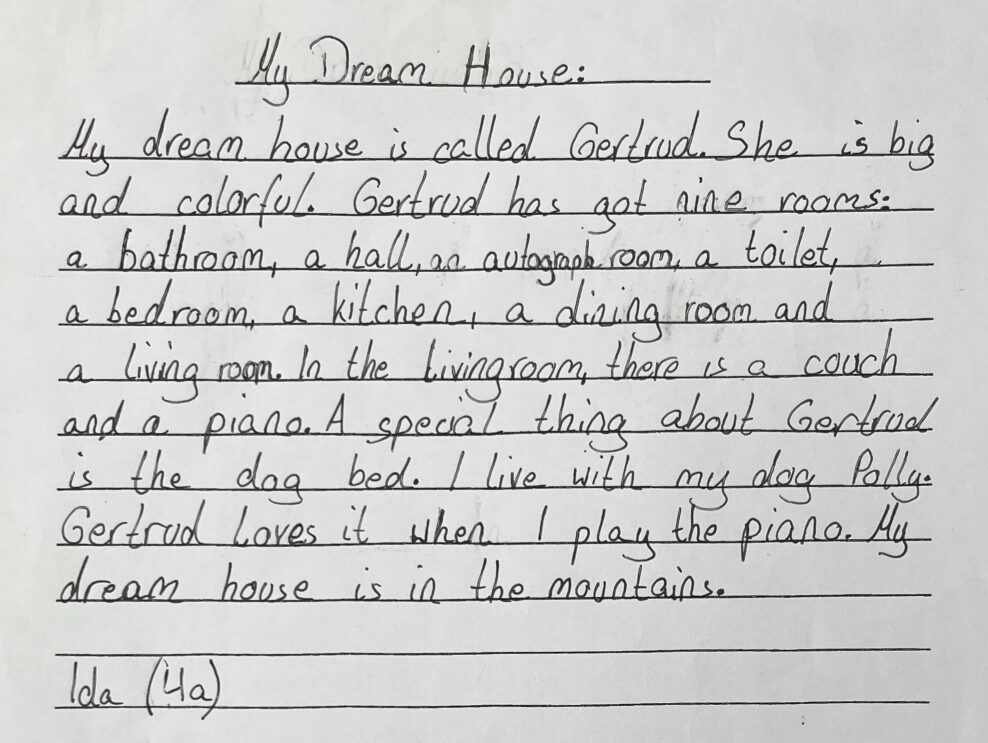 My Dream House:
My dream house is called Gertrud. She is big
and colorful. Gertrud has got nine rooms:
a bathroom, a hall, an autograph room, a toilet,
a bedroom, a kitchen, a dining room and
a living room. In the livingroom, there is a couch
and a piano. A special thing about Gertrud
is the dog bed. I live with my dog Polly.
Gertrud loves it when I play the piano. My
dream house is in the mountains.
Ida (4a)